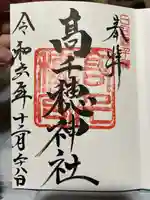 奉拝
髙千穂神社
令和六年十二月